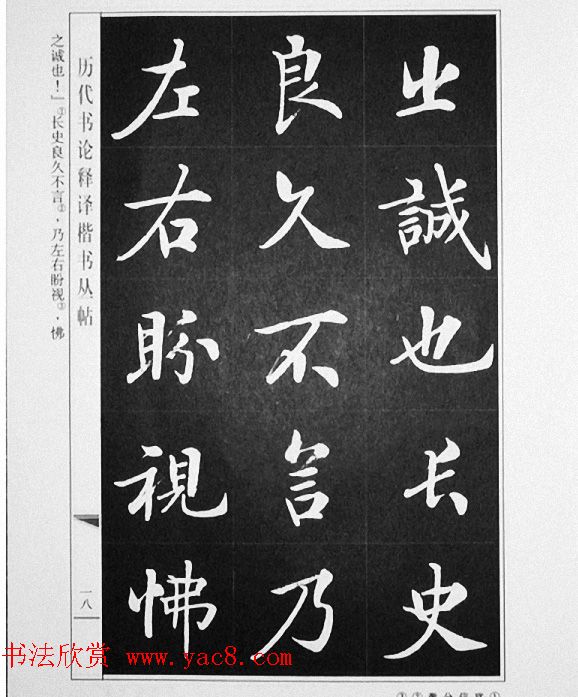 之誠也长史
良久不言乃
左右盼視怫
历代书论释译楷书丛帖
一八
之诚也！」①长史良久不言②，乃左右盼视③，怫
书法欣赏 www.yac8.com